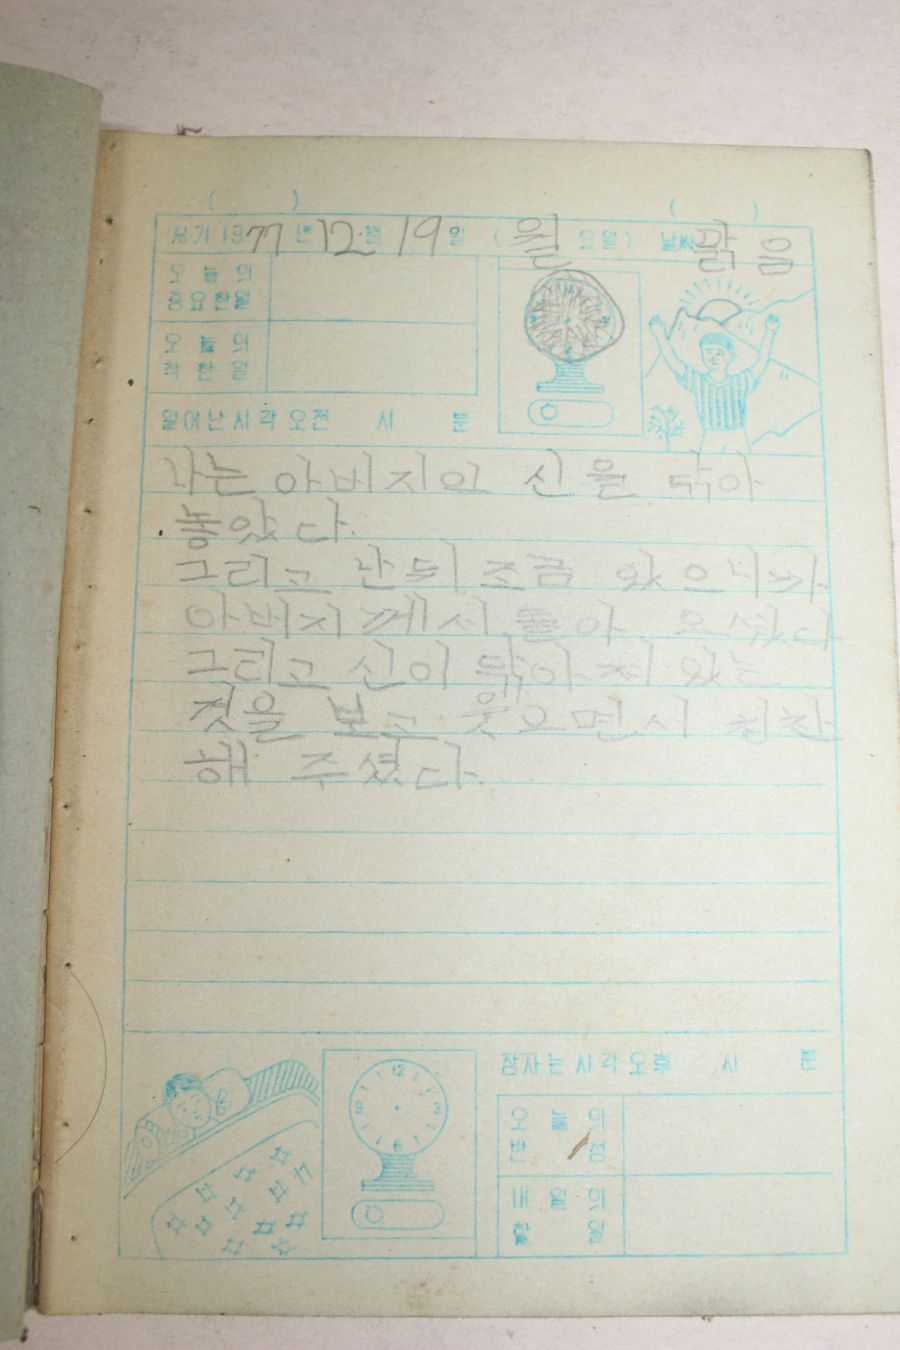 ( ) ( )
서기 1977년 12월 19일 (월 요일) 날씨 맑음
오늘의
중요한일
오늘의
착한일
일어난시각오전 시 분
나는 아버지의 신을 닦아
놓았다.
그리고 난뒤 조금 있으니까
아버지께서 돌아 오셨다
그리고 신이 닦아져 있는
것을 보고 웃으면서 칭찬
해 주셨다.
잠자는시각오후 시 분
12
3
6
9
오늘의
반성
내일의
할일